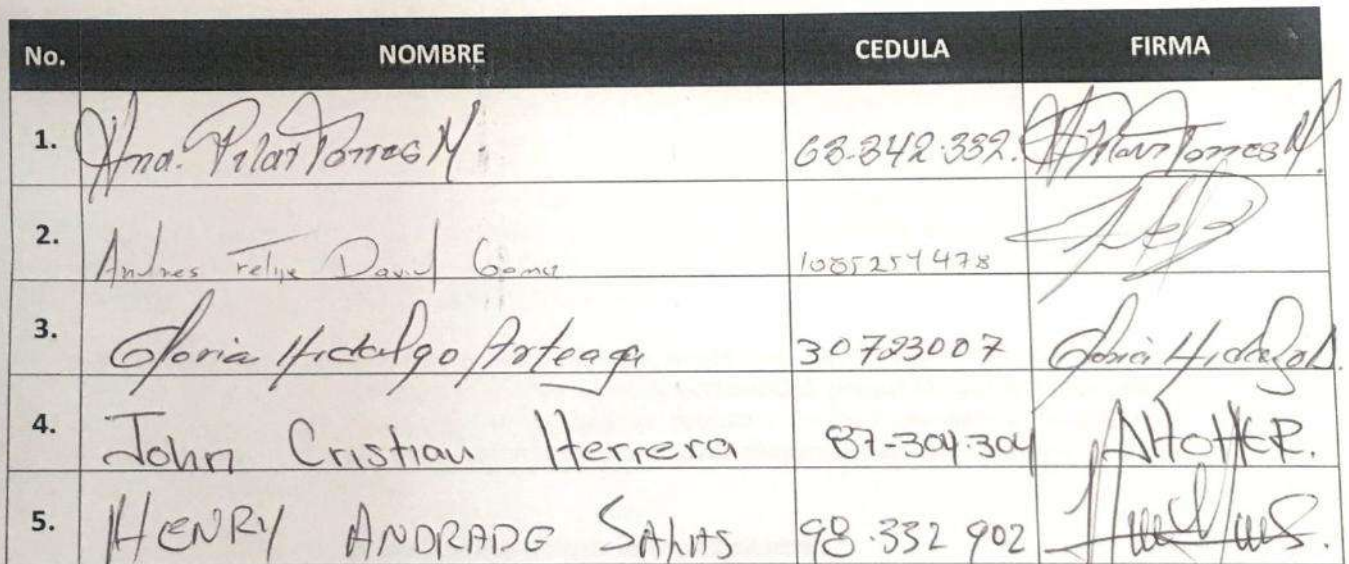 No. NOMBRE CEDULA FIRMA
1. Hna. Pilar Torres M. 63.342.332. Pilar Torres M.
2. Andres Felipe David Gomez 1085254478
3. Gloria Hidalgo Arteaga 30723007 Gloria Hidalgo A.
4. John Cristian Herrera 87-304.304
5. HENRY ANDRADE SALAS 98.332 902